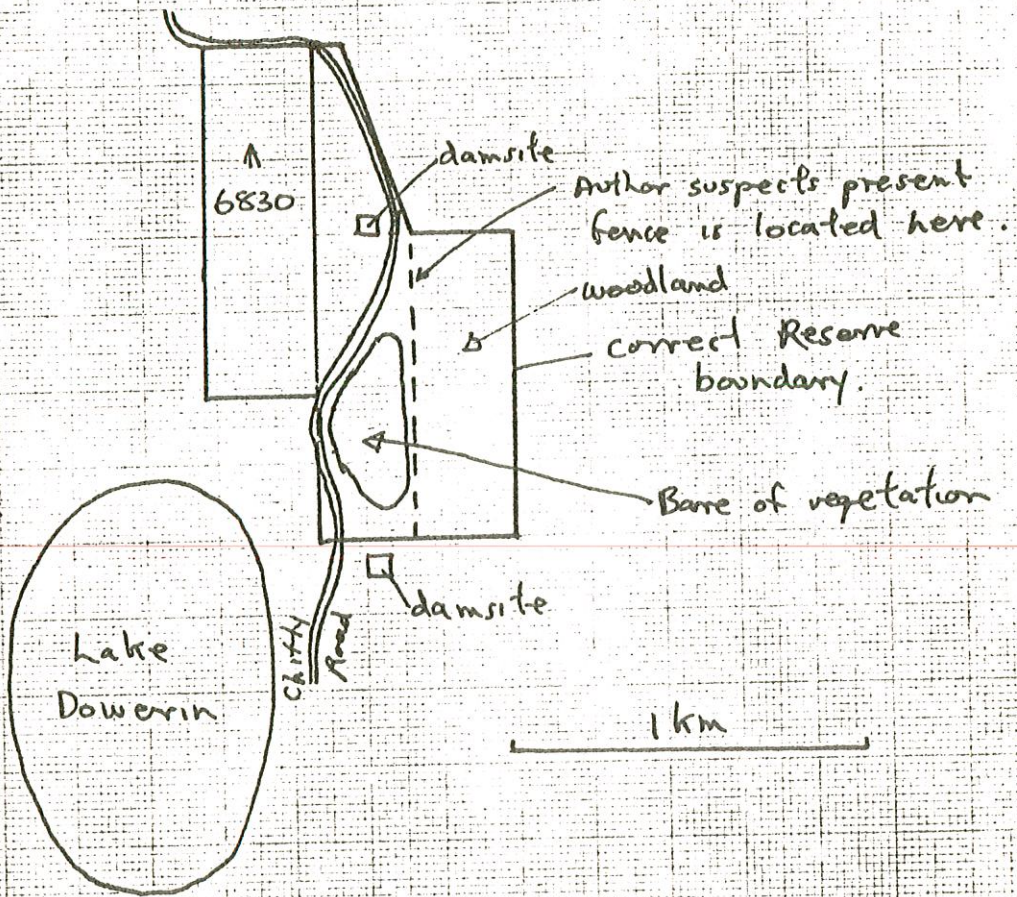 damsite
Author suspects present
fence is located here.
6830
woodland
correct Reserve
boundary.
Bare of vegetation
damsite
Chitty
Road
Lake
Dowerin
1 km